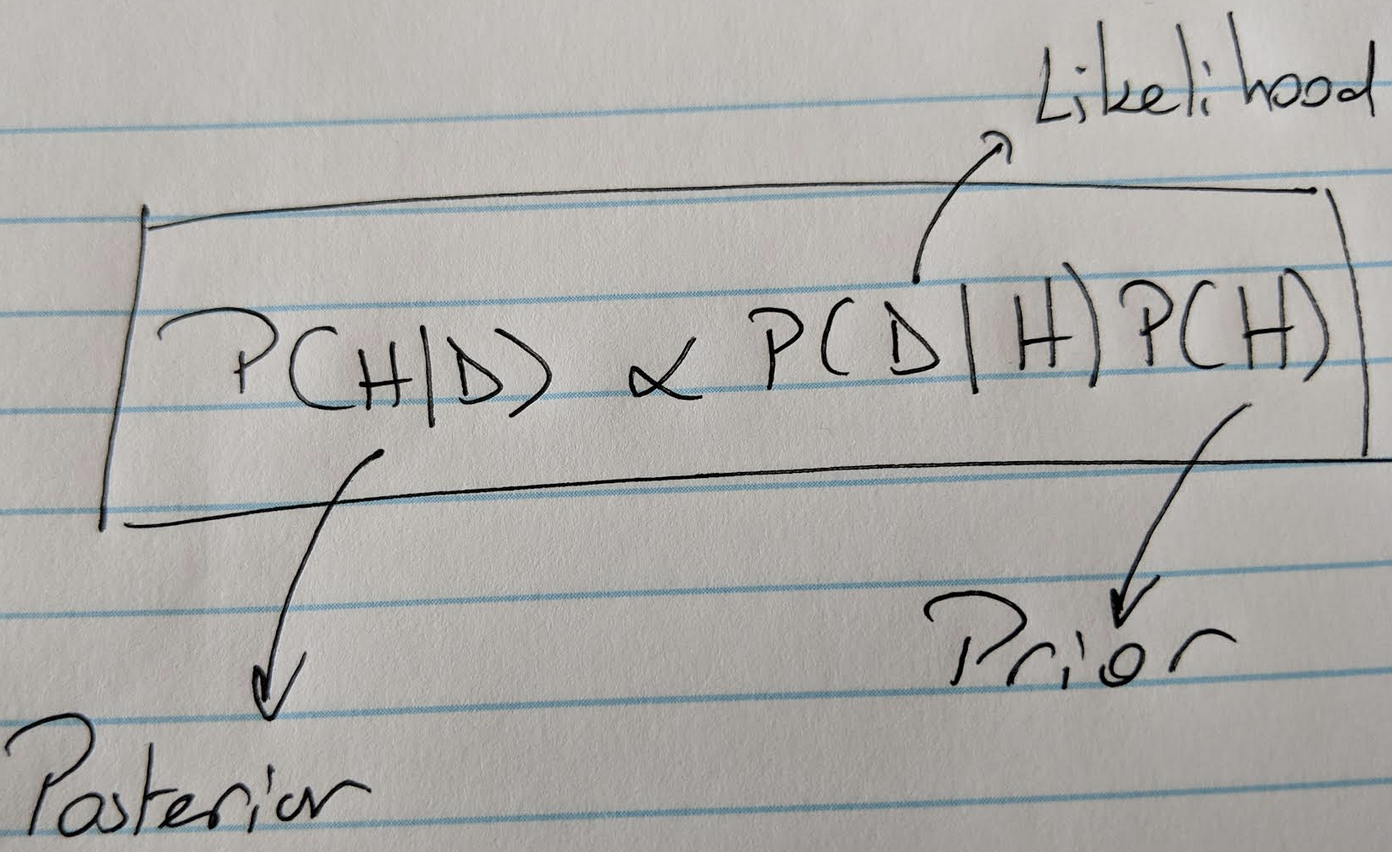 Likelihood
P(H|D) ∝ P(D|H)P(H)
Prior
Posterior